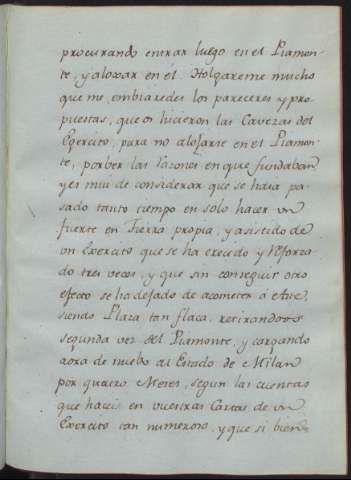 procurando entrar luego en el Piamon-
te, y aloxar en él. Holgareme mucho
que me embiaredes los pareceres y pro-
puestas, que os hicieron las Cavezas del
Egercito, para no alojarse en el Piamon-
te, por ver las razones en que fundaban
y es mui de considerar que se haia pa-
sado tanto tiempo en solo hacer un
fuerte en Tierra propia, y asistido de
un Exercito que se ha crecido y reforza-
do tres veces, y que sin conseguir otro
efecto se ha dejado de acometer á
siendo Plaza tan flaca, retirandoos
segunda vez del Piamonte, y cargando
aora de nuebo al Estado de Milan
por quatro Meses, segun las cuentas
que haceis en vuestras Cartas, de un
Exercito tan numeroso, y que si bien